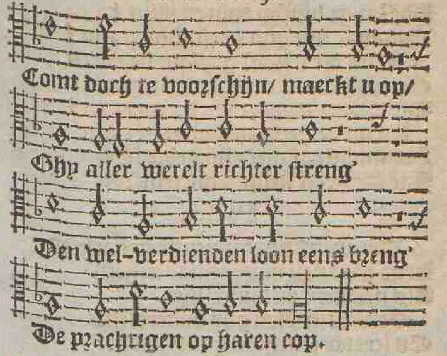 Comt doch te voorschijn/ maeckt u op/
Ghy aller werelt richter streng'
Den wel-verdienden loon eens breng'
De prachtigen op haren cop.